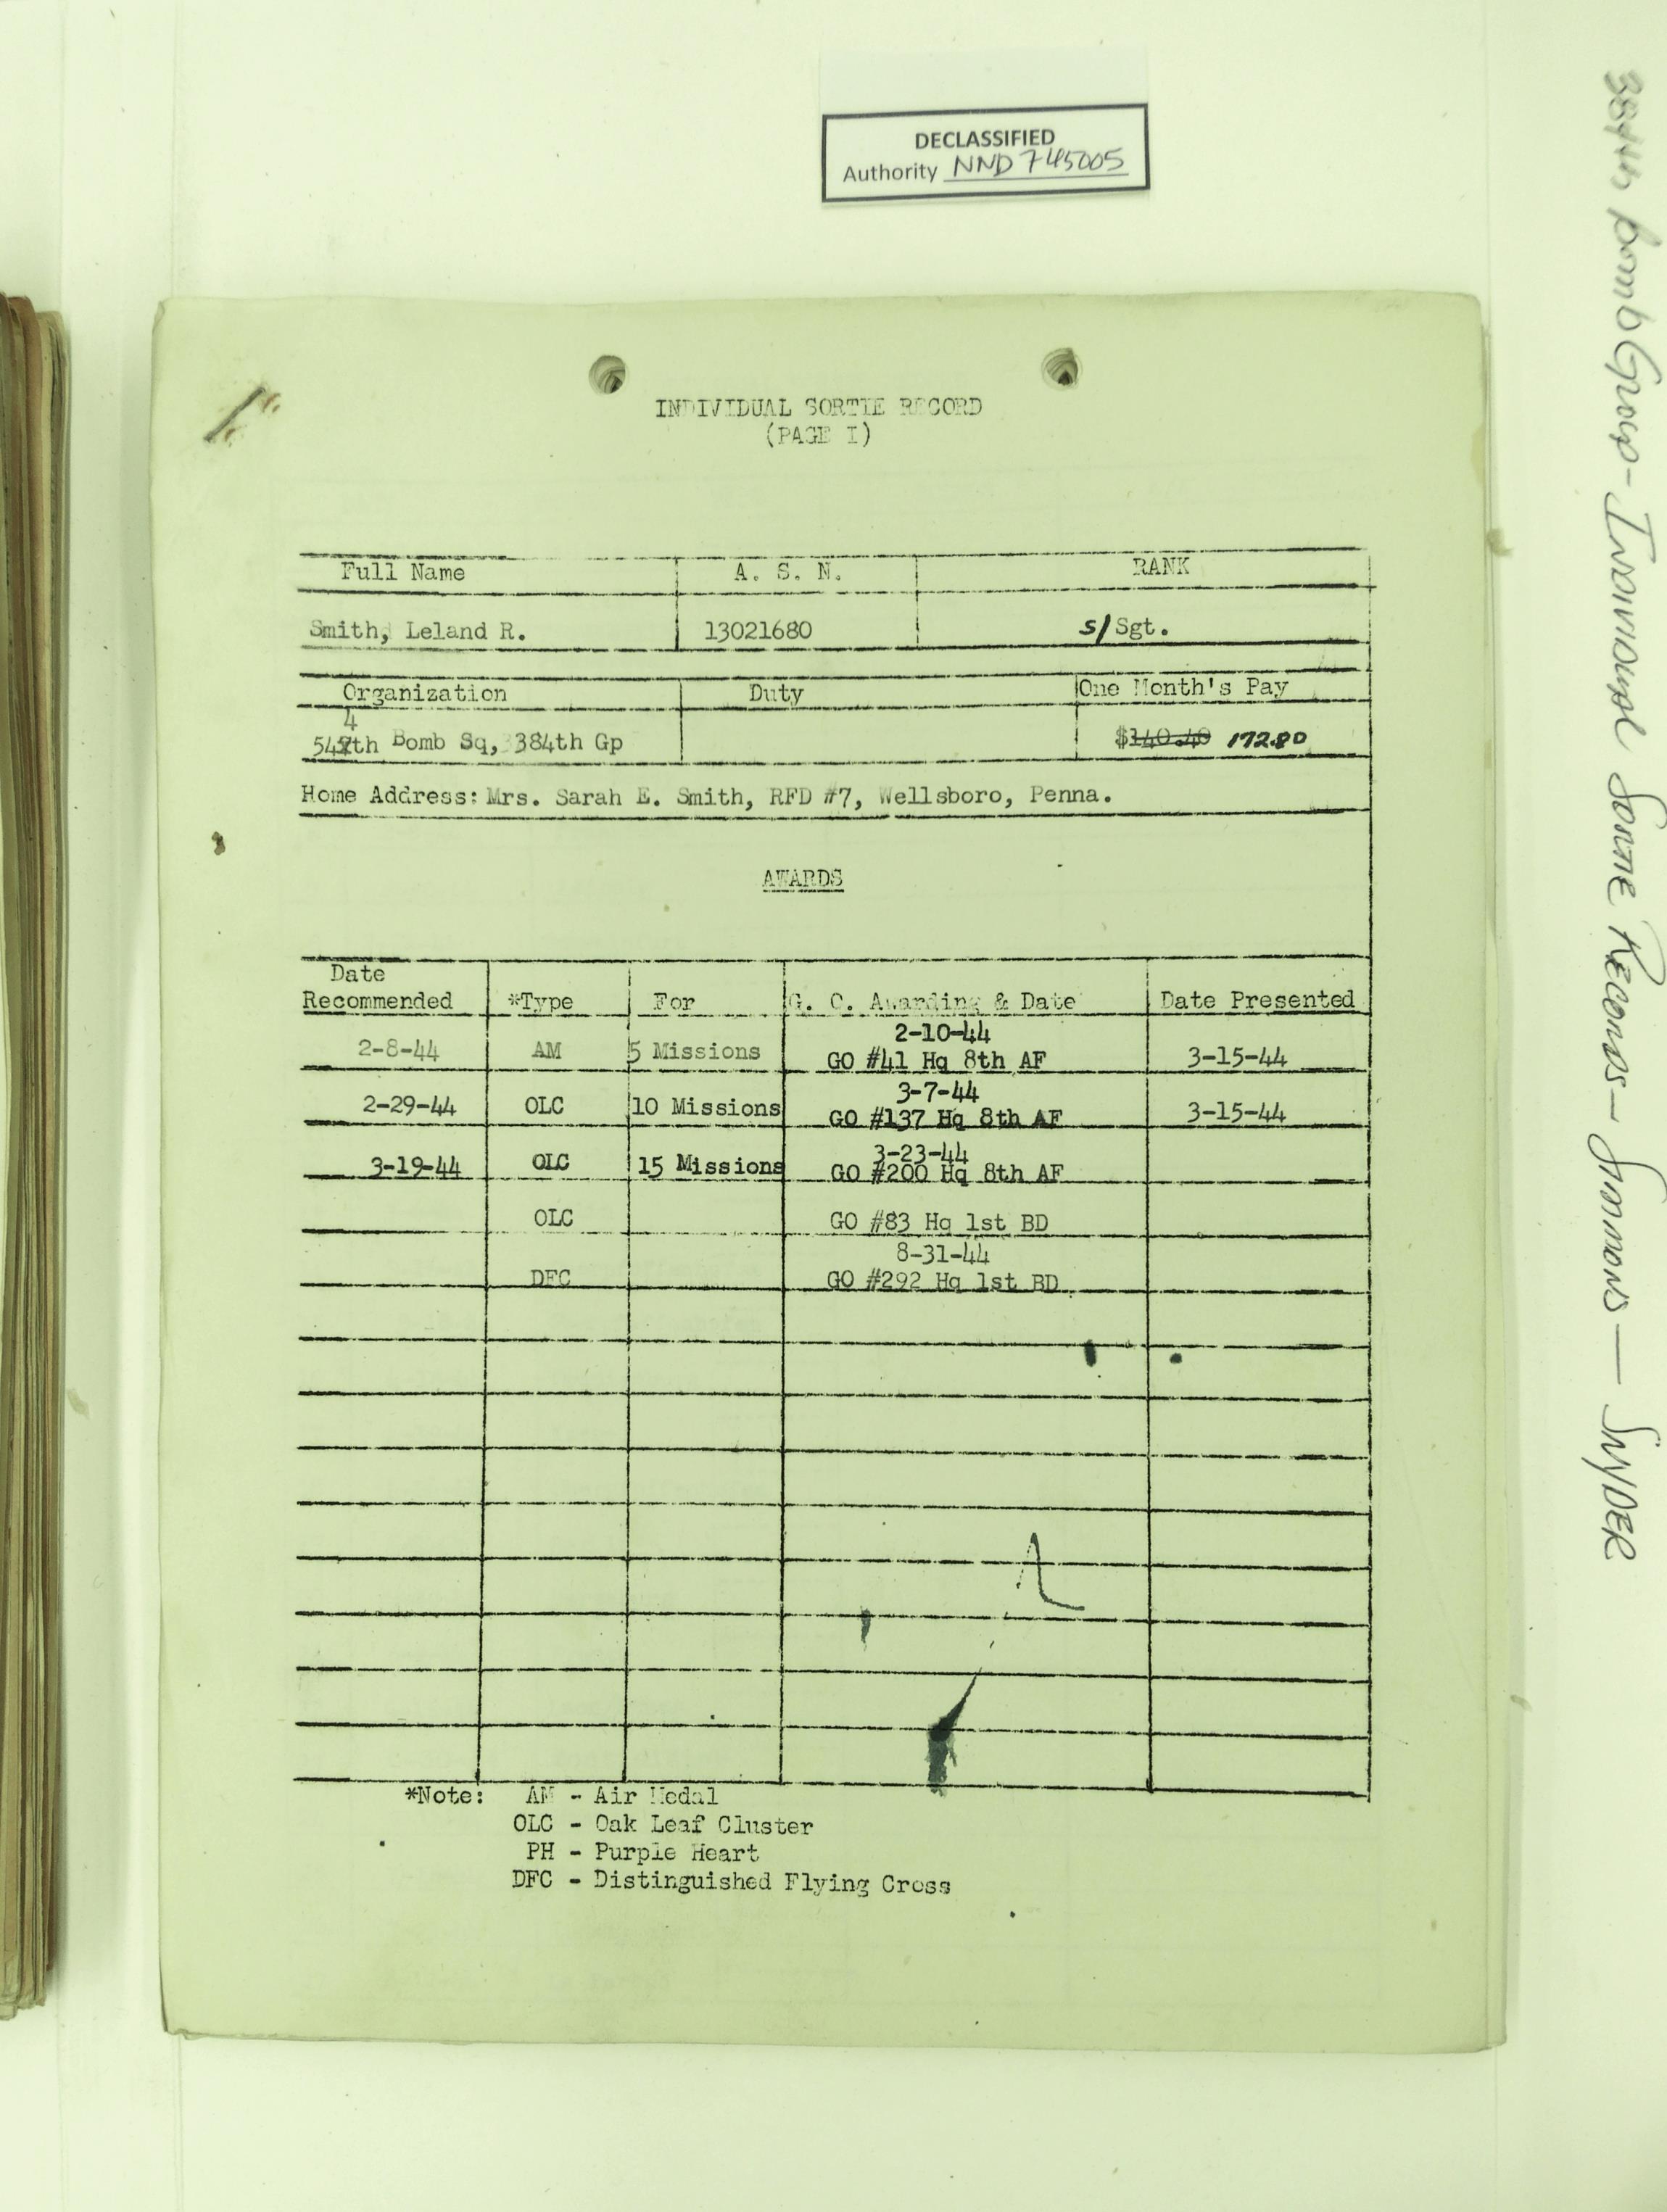 DECLASSIFIED
Authority NND 745005
INDIVIDUAL SORTIE RECORD
(PAGE I)
Full Name A. S. N. RANK
Smith, Leland R. 13021680 S/Sgt.
Organization Duty One Month's Pay
4
547th Bomb Sq, 384th Gp $140.40 172.80
Home Address: Mrs. Sarah E. Smith, RFD #7, Wellsboro, Penna.
AWARDS
Date
Recommended *Type For G. O. Awarding & Date Date Presented
2-10-44
2-8-44 AM 5 Missions GO #41 Hq 8th AF 3-15-44
3-7-44
2-29-44 OLC 10 Missions GO #137 Hq 8th AF 3-15-44
3-23-44
3-19-44 OLC 15 Missions GO #200 Hq 8th AF
OLC GO #83 Hq 1st BD
8-31-44
DFC GO #292 Hq 1st BD
*Note: AM - Air Medal
OLC - Oak Leaf Cluster
PH - Purple Heart
DFC - Distinguished Flying Cross
384th Bomb Group - Individual Sortie Records - Simmons - Snyder